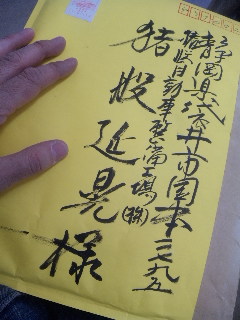 静岡県袋井市国本二七九五
猪股自動車整備工場(株)
猪股延晃様